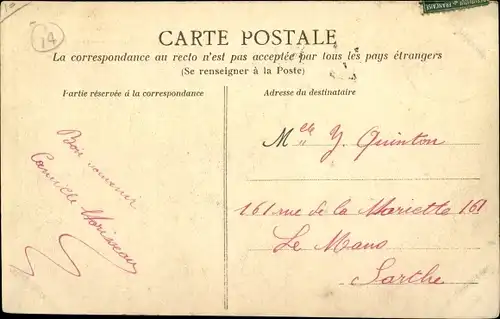 14
CARTE POSTALE
La correspondance au recto n'est pas acceptée par tous les pays étrangers
(Se renseigner à la Poste)
Partie réservée à la correspondance
Adresse du destinataire
Bon souvenir
Camille Morisseau
Melle Y. Quinton
161 rue de la Mariette 161
Le Mans
Sarthe